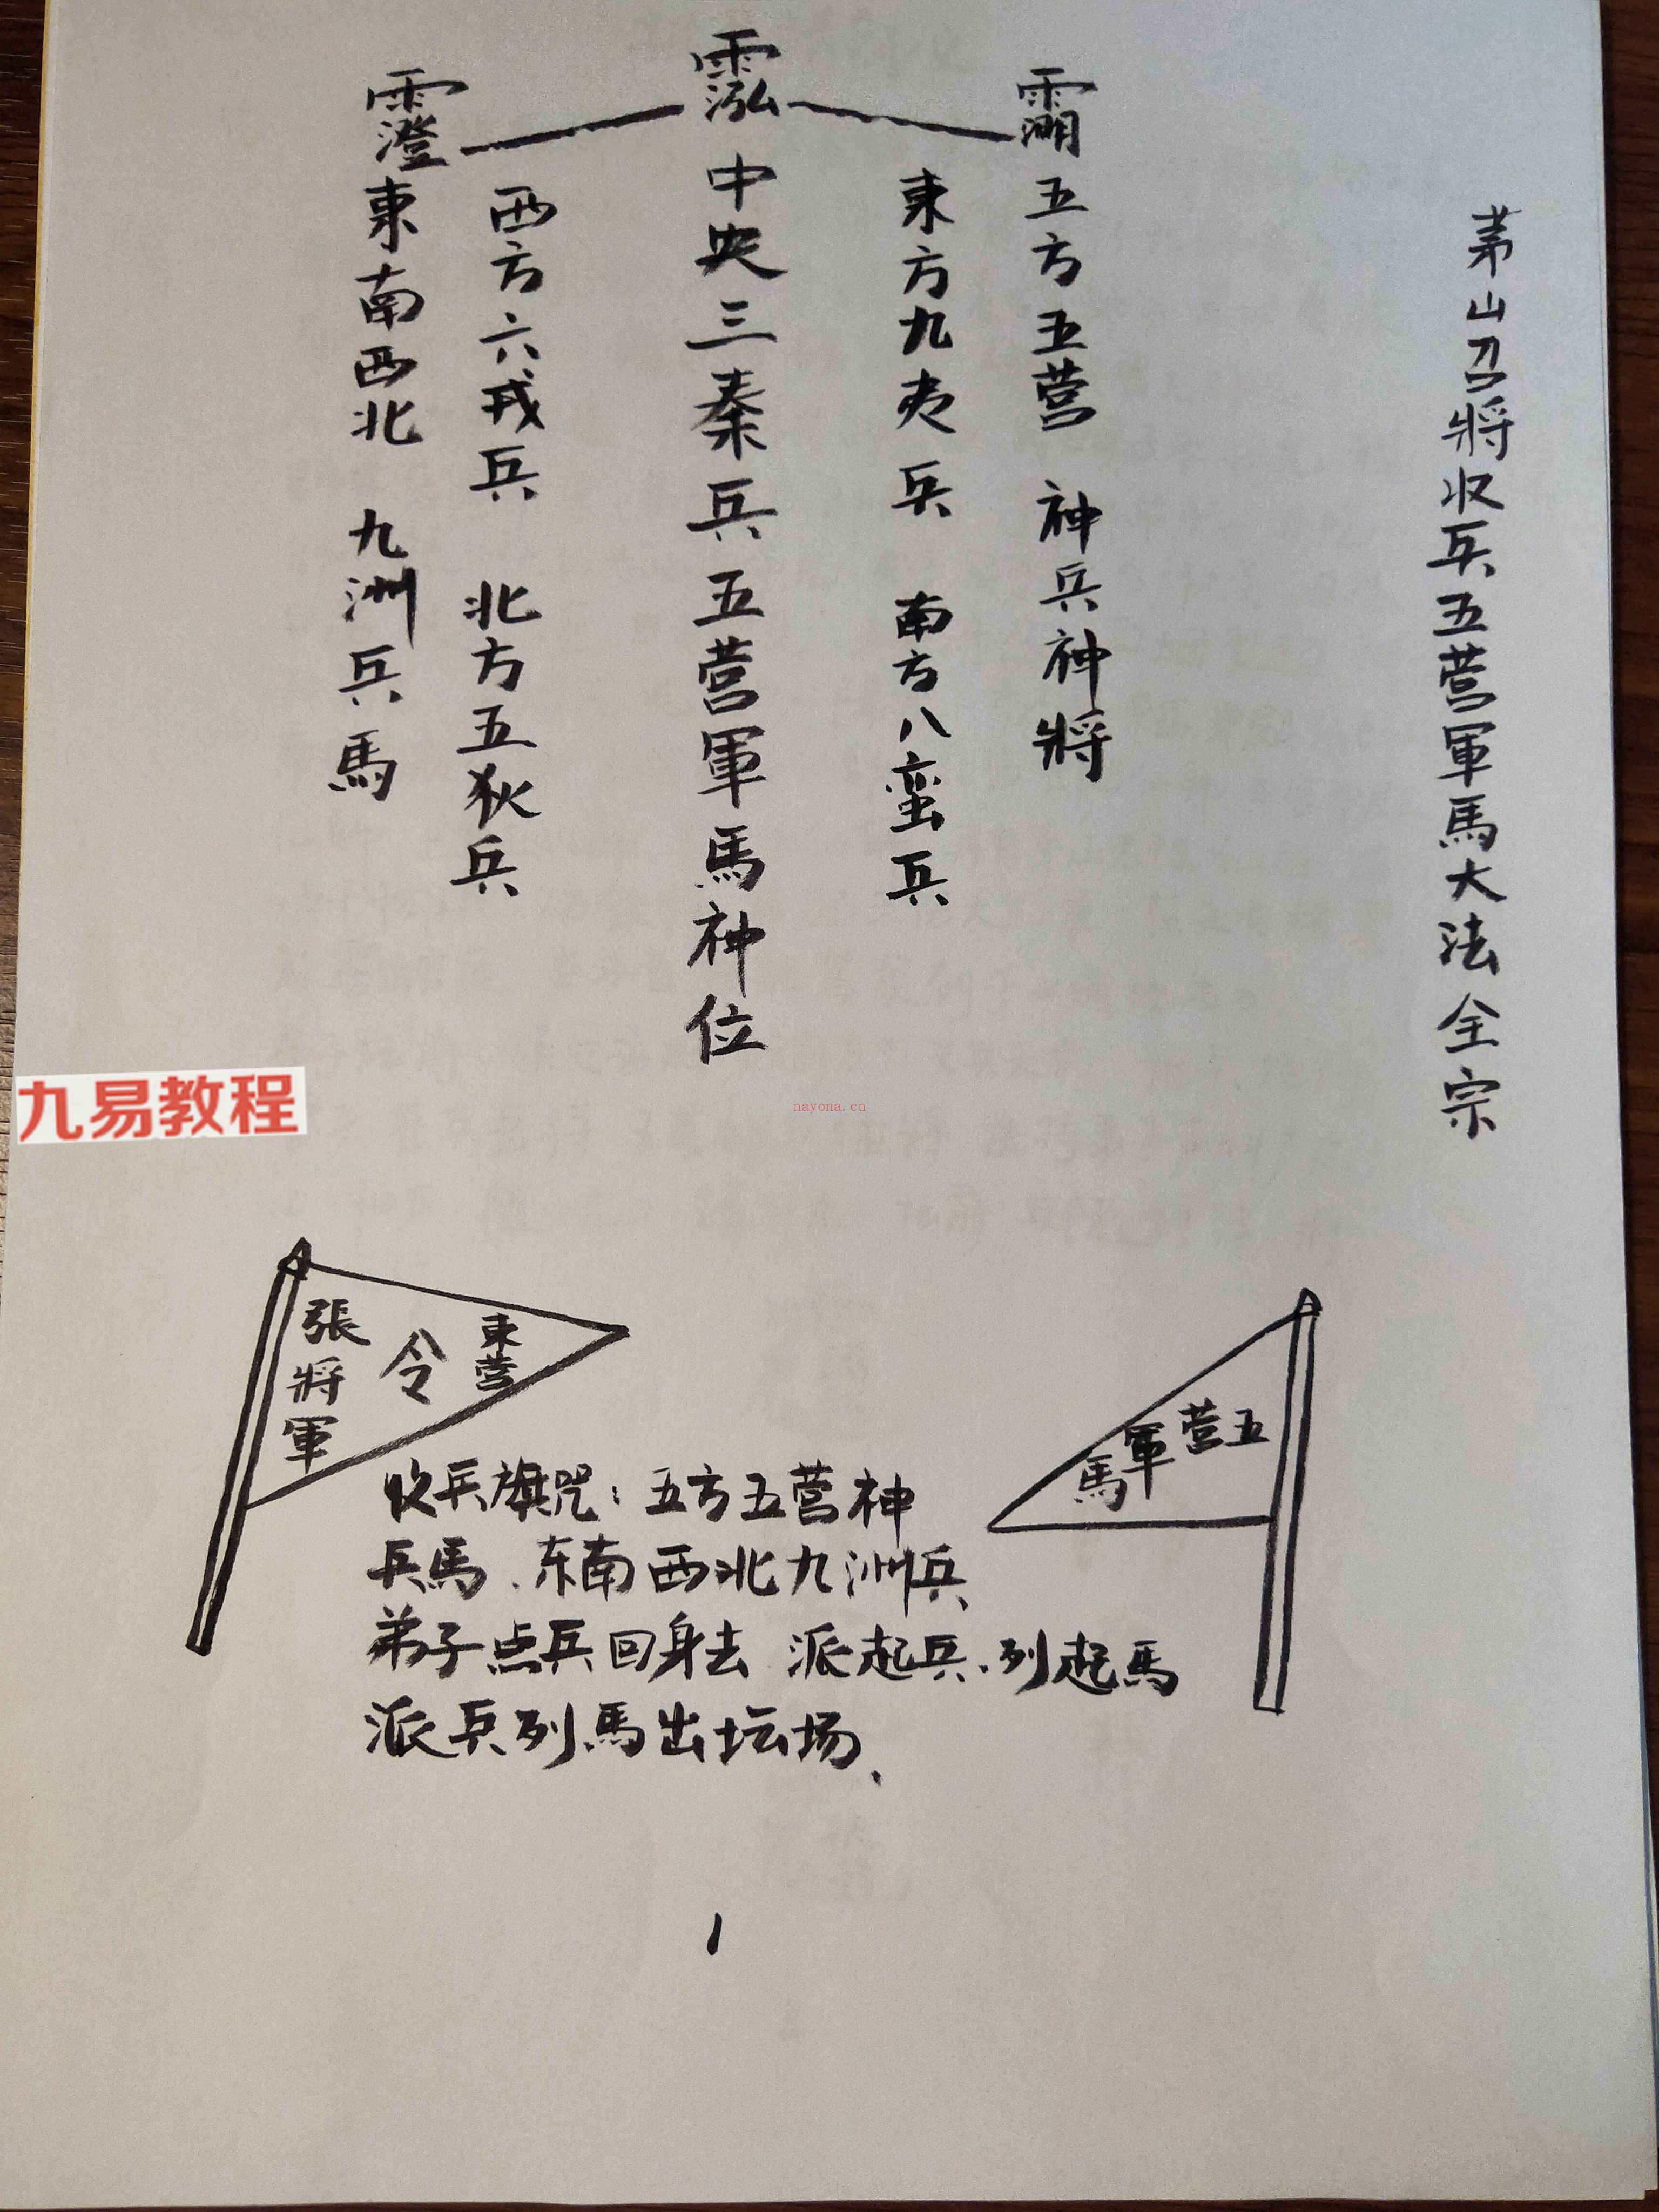 茅山召將收兵五营軍馬大法全宗
五方五营 神兵神將
東方九夷兵 南方八蛮兵
中央三秦兵五营軍馬神位
西方六戎兵 北方五狄兵
東南西北 九洲兵馬
九易教程
nayona.cn
東营
令
張將軍
五营軍馬
收兵旗咒：五方五营神
兵馬、东南西北九洲兵
弟子点兵回身去 派起兵、列起馬
派兵列馬出坛场、
1